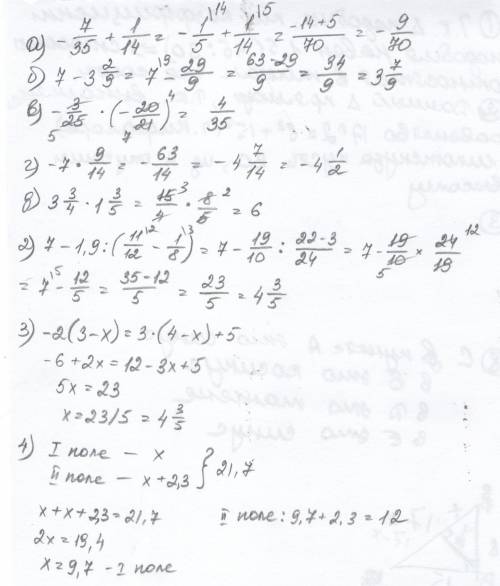 а) 7/35 + 1/14 = - 1/5 \14 + 1/14 \5 = -14+5/70 = - 9/70
б) 7 - 3 2/9 = 7 \9 29/9 = 63-29/9 = 34/9 = 3 7/9
в) - 3/25 5 · (- 20/21) 4 7 = 4/35
г) -7 · 9/14 = - 63/14 = -4 7/14 = -4 1/2
д) 3 3/4 · 1 3/5 = 15/4 3 · 8/5 2 = 6
2) 7 - 1,9 : (11/12 \2 - 1/8 \3) = 7 - 19/10 : 22-3/24 = 7 - 19/10 5 × 24/19 12
= 7 \5 - 12/5 = 35-12/5 = 23/5 = 4 3/5
3) -2(3-x) = 3·(4-x)+5
-6+2x = 12-3x+5
5x = 23
x = 23/5 = 4 3/5
4) I поле - x
II поле - x+2,3 } 21,7
x+x+2,3 = 21,7 II поле: 9,7+2,3 = 12
2x = 19,4
x = 9,7 - I поле